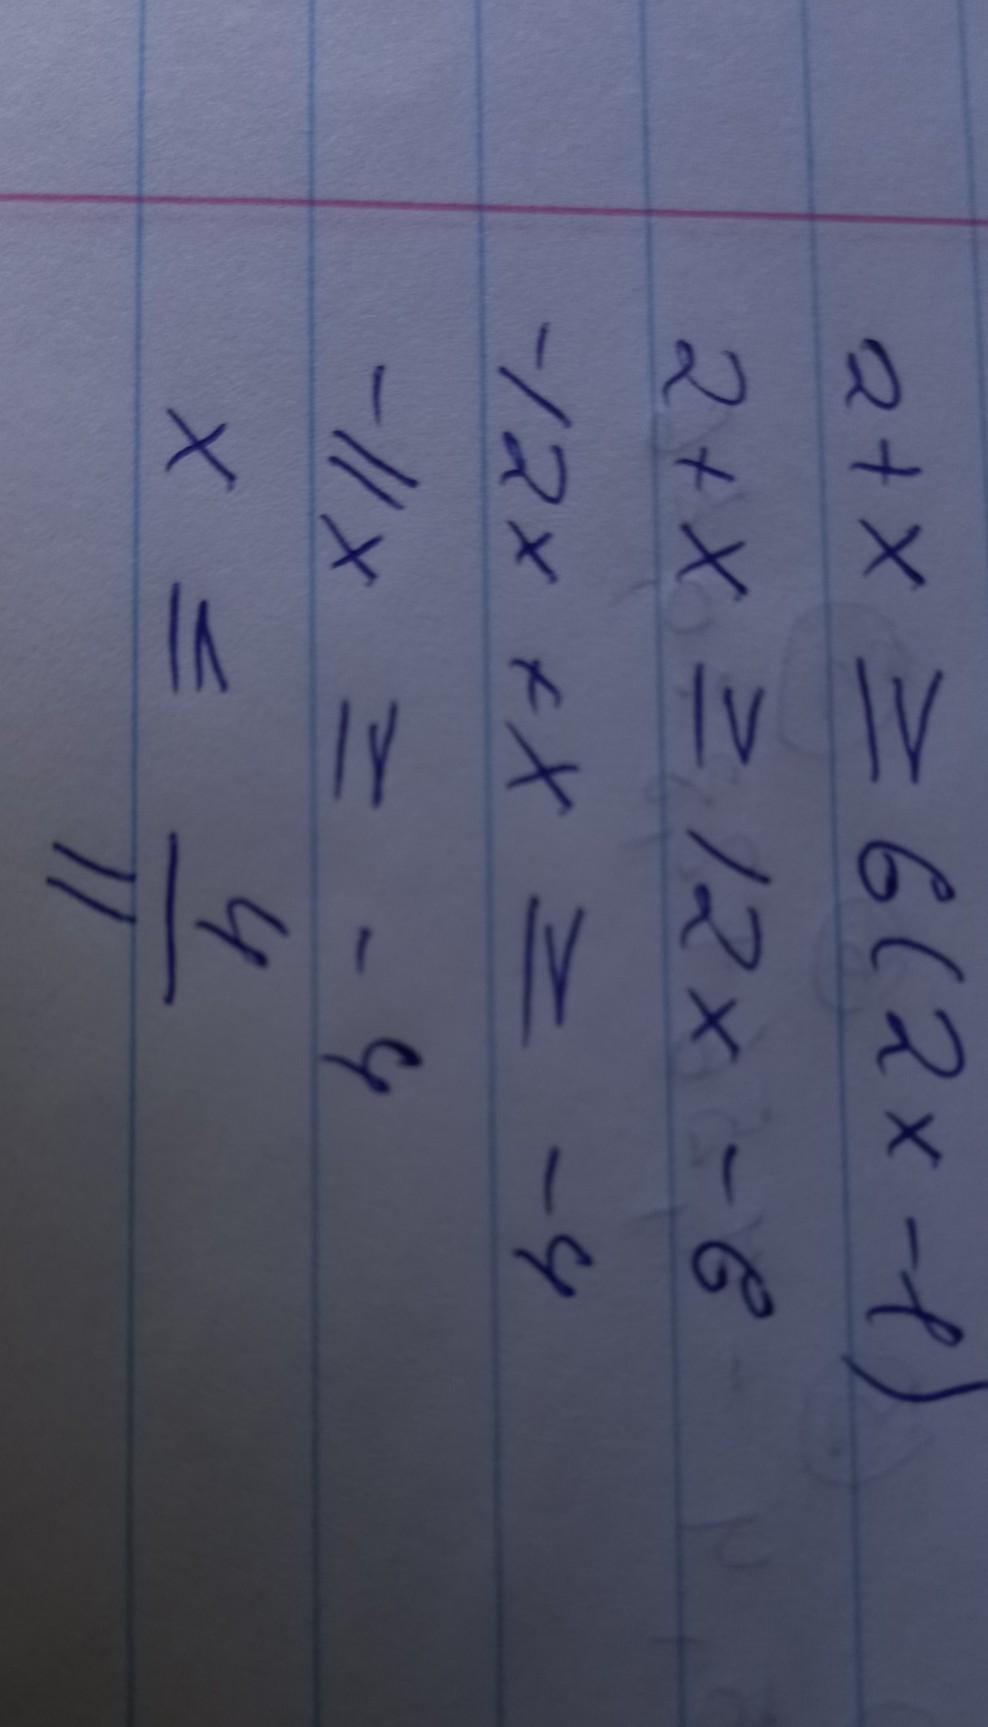 2 + x ≥ 6(2x - 1)
2 + x ≥ 12x - 6
-12x + x ≥ -4
-11x ≥ -4
x ≤ 4/11